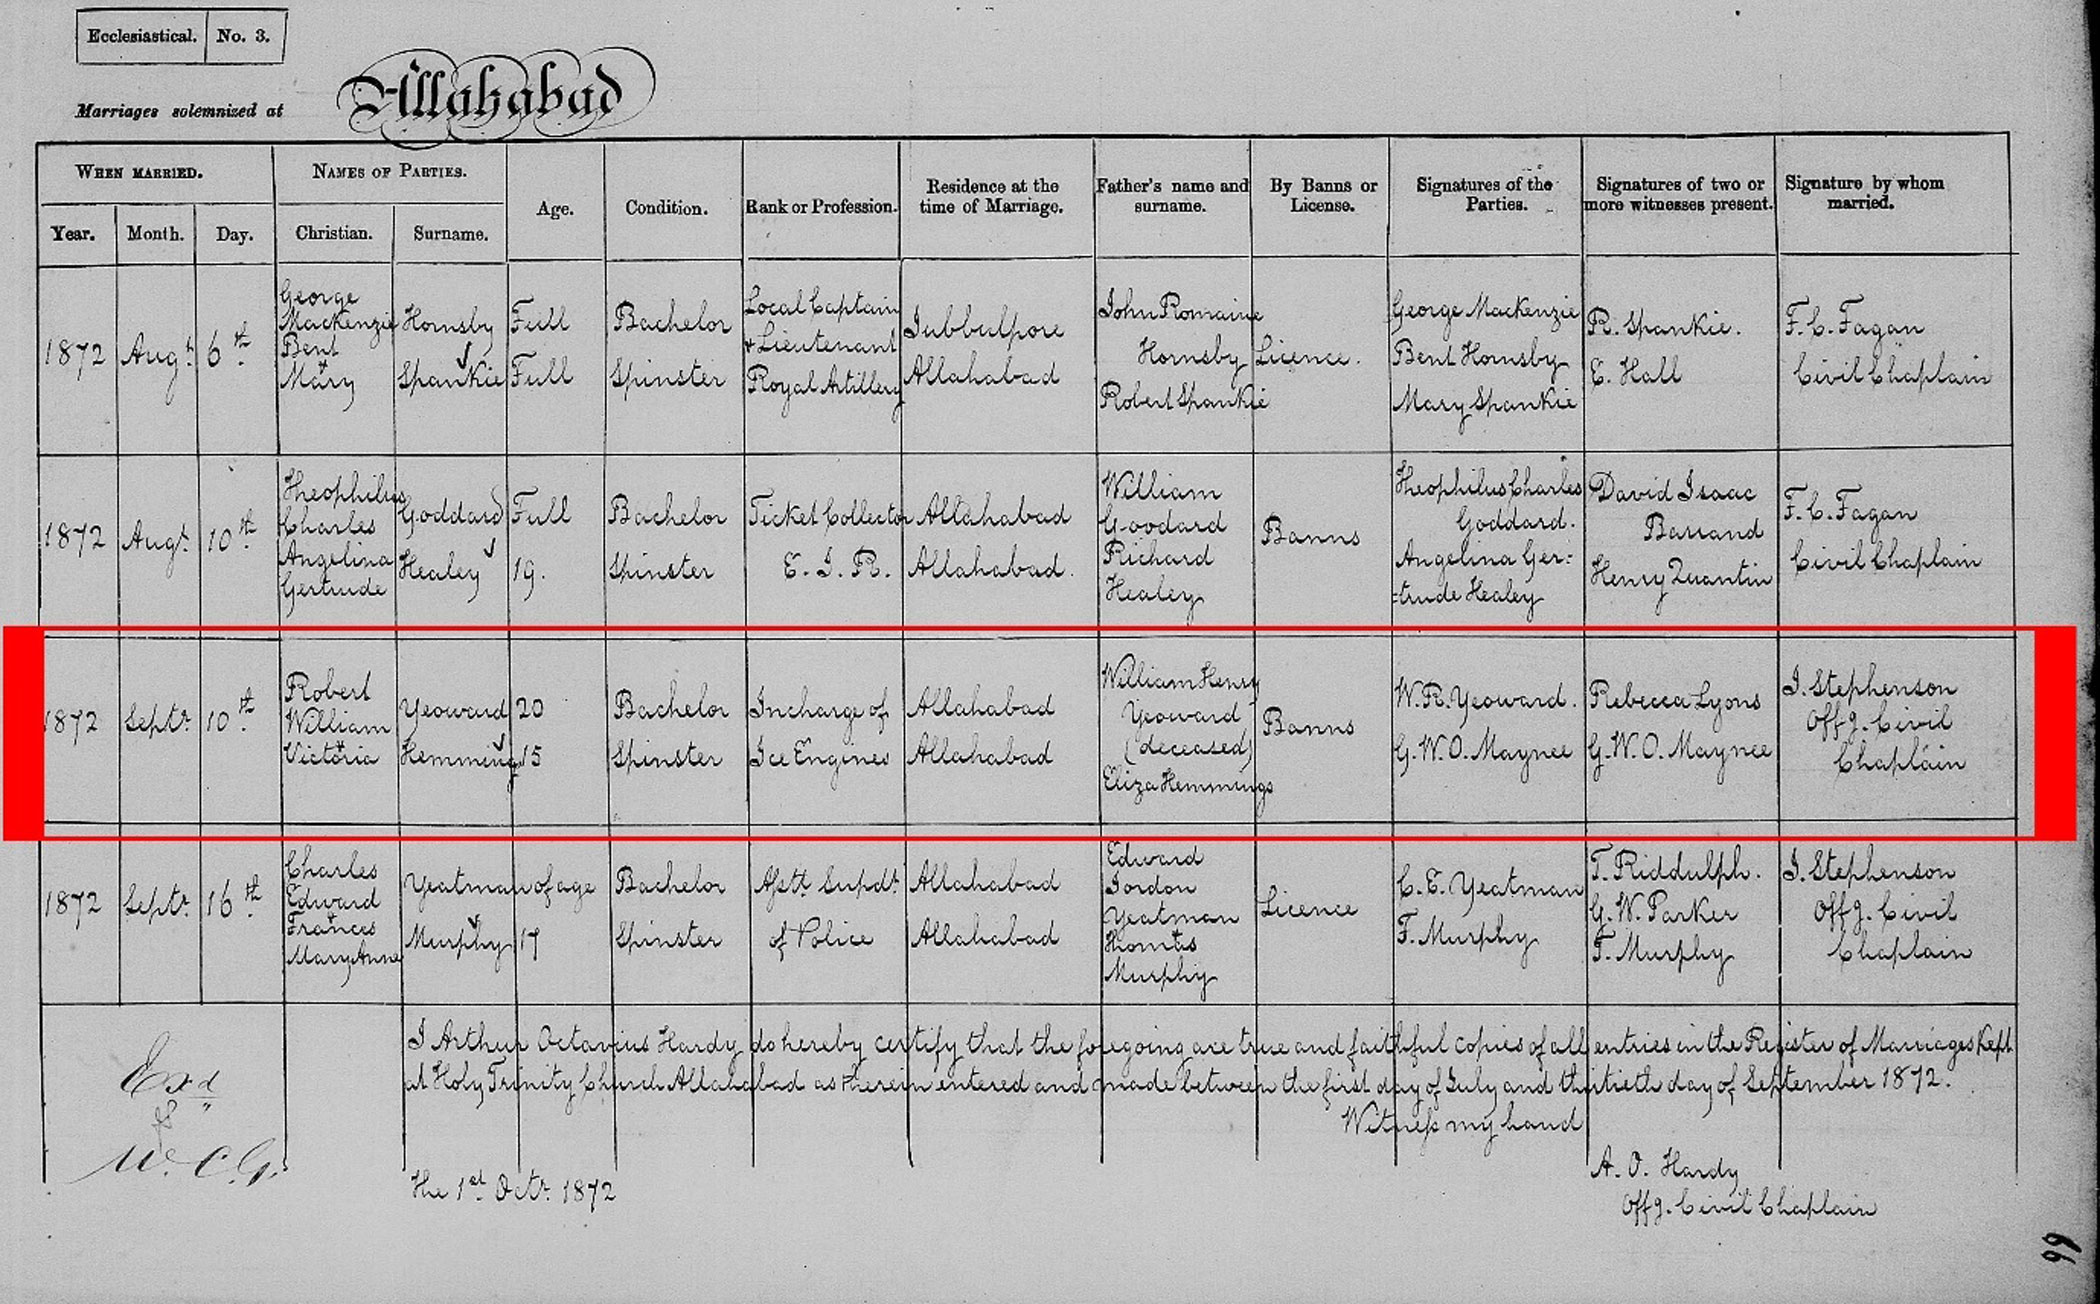 Ecclesiastical. No. 3.
Marriages solemnized at Allahabad
WHEN MARRIED. NAMES OF PARTIES. Age. Condition. Rank or Profession. Residence at the time of Marriage. Father's name and surname. By Banns or License. Signatures of the Parties. Signatures of two or more witnesses present. Signature by whom married.
Year. Month. Day. Christian. Surname.
1872 Augt. 6th.
George
Mackenzie
Bent
+
Mary
Hornsby
Spankie
Full
Full
Bachelor
Spinster
Local Captain
+ Lieutenant
Royal Artillery
Jubbulpore
Allahabad
John Romaine
Hornsby
Robert Spankie
Licence.
George Mackenzie
Bent Hornsby
Mary Spankie
R. Spankie.
E. Hall
F. C. Fagan
Civil Chaplain
1872 Augt. 10th.
Theophilus
Charles
Angelina
Gertrude
Goddard
Healey
Full
19.
Bachelor
Spinster
Ticket Collector
E. I. R.
Allahabad
Allahabad.
William
Goddard
Richard
Healey
Banns
Theophilus Charles
Goddard.
Angelina Ger=
=trude Healey
David Isaac
Barrand
Henry Quantin
F. C. Fagan
Civil Chaplain
1872 Septr. 10th.
Robert
William
+
Victoria
Yeoward
Hemming
20
15
Bachelor
Spinster
Incharge of
Ice Engines
Allahabad
Allahabad
William Henry
Yeoward
(deceased)
Eliza Hemmings
Banns
W. R. Yeoward.
G. W. O. Maynee
Rebecca Lyons
G. W. O. Maynee
J. Stephenson
Offg. Civil
Chaplain
1872 Septr. 16th.
Charles
Edward
+
Frances
Mary Anne
Yeatman
Murphy
of age
17
Bachelor
Spinster
Asstt. Supdt.
of Police
Allahabad
Allahabad
Edward
Jordon
Yeatman
+
Thomas
Murphy
Licence
C. E. Yeatman
F. Murphy
T. Riddulph.
G. W. Parker
T. Murphy
J. Stephenson
Offg. Civil
Chaplain
I Arthur Octavius Hardy do hereby certify that the foregoing are true and faithful copies of all entries in the Register of Marriages Kept
at Holy Trinity Church Allahabad as therein entered and made between the first day of July and thirtieth day of September 1872.
Witness my hand
Exd
W. C. G.
The 1st. Octr. 1872
A. O. Hardy
Offg. Civil Chaplain
99